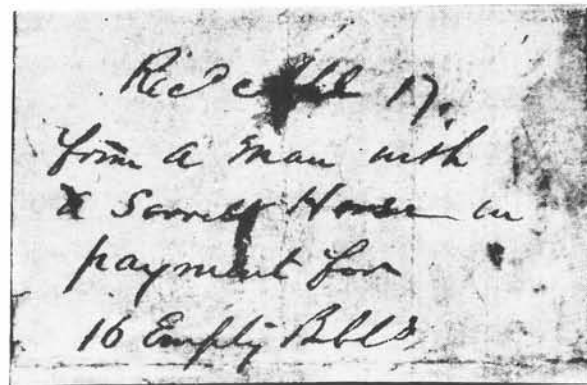 Rec'd 17.
from a man with
a Sorrell Horse in
payment for
16 Empty Bbls